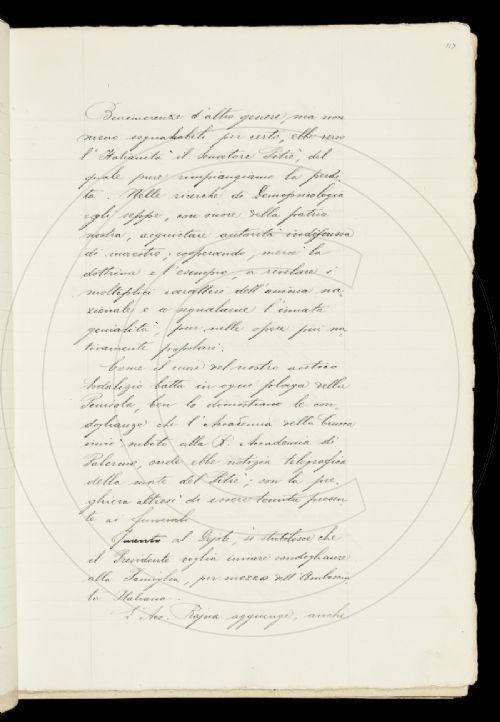 117
Benemerenze d'altro genere, ma non
meno segnalabili per certo, ebbe verso
l'Italianità il senatore Pitrè, del
quale pure rimpiangiamo la perdi-
ta. Nelle ricerche di Demopsicologia
egli seppe, con onore della patria
nostra, acquistare autorità indiscussa
di maestro, cooperando, mercè la
dottrina e l'esempio, a rivelare i
molteplici caratteri dell'anima na-
zionale e a segnalarne l'innata
genialità, pur nelle opere più na-
tivamente popolari.
Come il cuore del nostro antico
Sodalizio batta in ogni plaga della
Penisola, ben lo dimostrano le con-
doglianze che l'Accademia della Crusca
inviò subito alla R. Accademia di
Palermo, onde ebbe notizia telegrafica
della morte del Pitrè, con la pre-
ghiera altresì di essere tenuta presen-
te ai funerali.
Quanto al si stabilisce che
il Presidente voglia inviare condoglianze
alla Famiglia, per mezzo dell'Ambascia-
ta Italiana.
L'Acc. Rajna aggiunge, anche